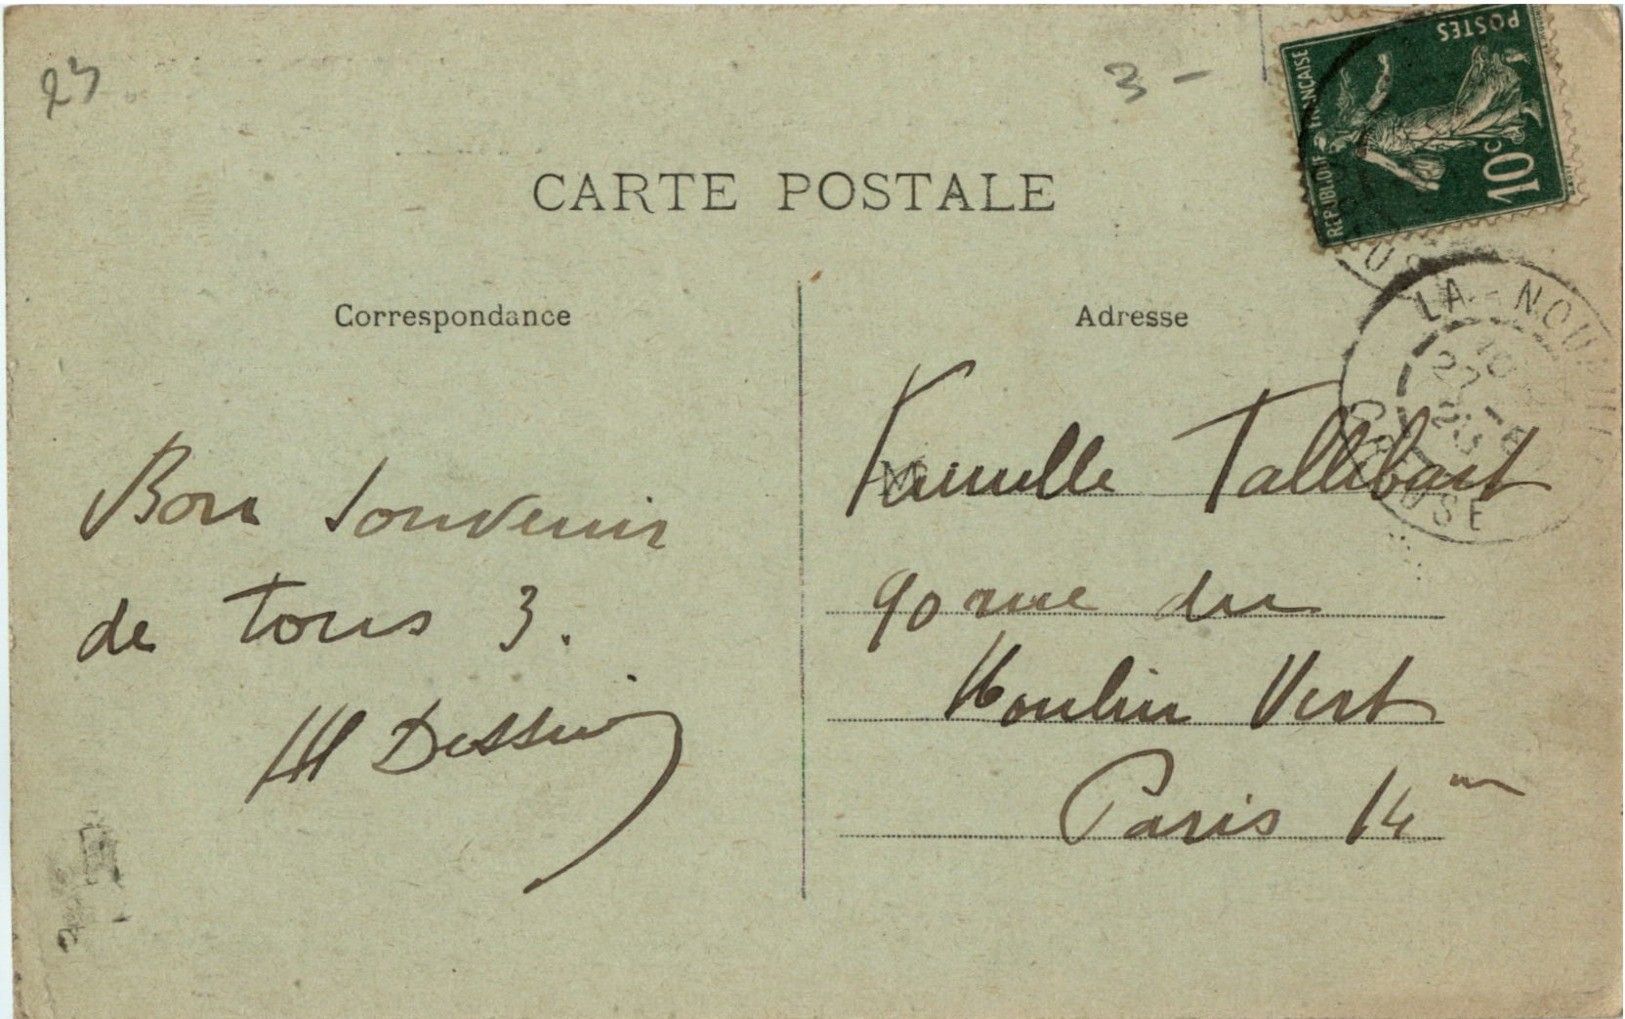 23
3 -
POSTES
REPUBLIQUE FRANÇAISE
10c
CARTE POSTALE
LA - NOU
27 -
CREUSE
Correspondance
Bon souvenir
de tous 3.
Adresse
M
Famille Tallibart
90 rue du
Moulin Vert
Paris 14me